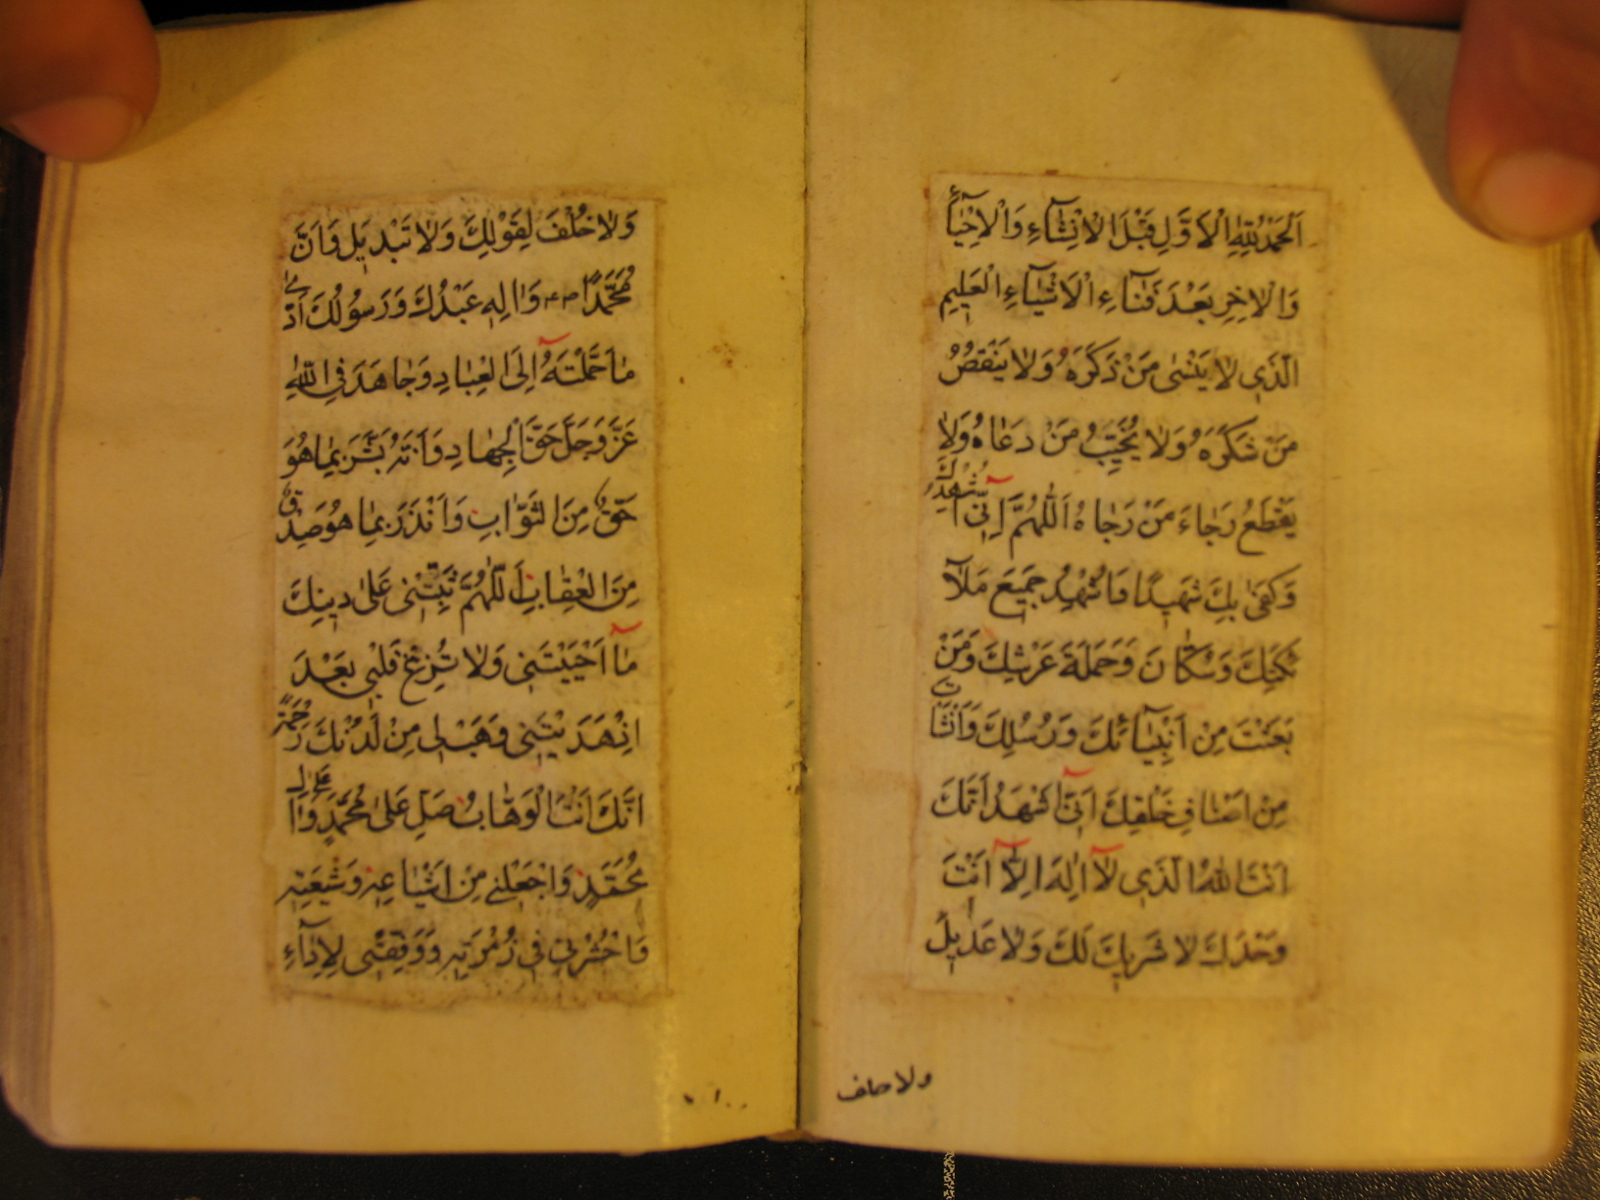 اَلْحَمْدُ لِلّٰهِ الْاَوَّلِ قَبْلَ الْاِنْشَاۤءِ وَالْاِحْيَاۤءِ
وَالْاٰخِرِ بَعْدَ فَنَاۤءِ الْاَشْيَاۤءِ الْعَلِيمِ
الَّذِى لَا يَنْسٰى مَنْ ذَكَرَهُ وَلَا يَنْقُصُ
مَنْ شَكَرَهُ وَلَا يُخَيِّبُ مَنْ دَعَاهُ وَلَا
يَقْطَعُ رَجَاۤءَ مَنْ رَجَاهُ اَللّٰهُمَّ اِنِّىۤ اُشْهِدُكَ
وَكَفٰى بِكَ شَهِيدًا وَاُشْهِدُ جَمِيعَ مَلَاۤ
ئِكَتِكَ وَسُكَّانَ وَحَمَلَةَ عَرْشِكَ وَمَنْ
بَعَثْتَ مِنْ اَنْبِيَاۤئِكَ وَرُسُلِكَ وَاَنْشَأْتَ
مِنْ اَصْنَافِ خَلْقِكَ اَنِّىۤ اَشْهَدُ اَنَّكَ
اَنْتَ اللّٰهُ الَّذِى لَاۤ اِلٰهَ اِلَّاۤ اَنْتَ
وَحْدَكَ لَا شَرِيكَ لَكَ وَلَا عَدِيلَ
ولا خلف
وَلَا خُلْفَ لِقَوْلِكَ وَلَا تَبْدِيلَ وَاَنَّ
مُحَمَّدًا وَاٰلِهِ عَبْدُكَ وَرَسُولُكَ اَدّٰى
مَا حَمَّلْتَهُۤ اِلَى الْعِبَادِ وَجَاهَدَ فِى اللّٰهِ
عَزَّ وَجَلَّ حَقَّ الْجِهَادِ وَاَنَّهُ بَشَّرَ بِمَا هُوَ
حَقٌّ مِنَ الثَّوَابِ وَاَنْذَرَ بِمَا هُوَ صِدْقٌ
مِنَ الْعِقَابِ اَللّٰهُمَّ ثَبِّتْنِى عَلٰى دِينِكَ
مَاۤ اَحْيَيْتَنِى وَلَا تُزِغْ قَلْبِى بَعْدَ
اِذْ هَدَيْتَنِى وَهَبْ لِى مِنْ لَدُنْكَ رَحْمَةً
اِنَّكَ اَنْتَ الْوَهَّابُ صَلِّ عَلٰى مُحَمَّدٍ وَعَلٰى اٰلِ
مُحَمَّدٍ وَاجْعَلْنِى مِنْ اَشْيَاعِهِ وَشِيعَتِهِ
وَاحْشُرْنِى فِى زُمْرَتِهِ وَوَفِّقْنِى لِاَدَاۤءِ